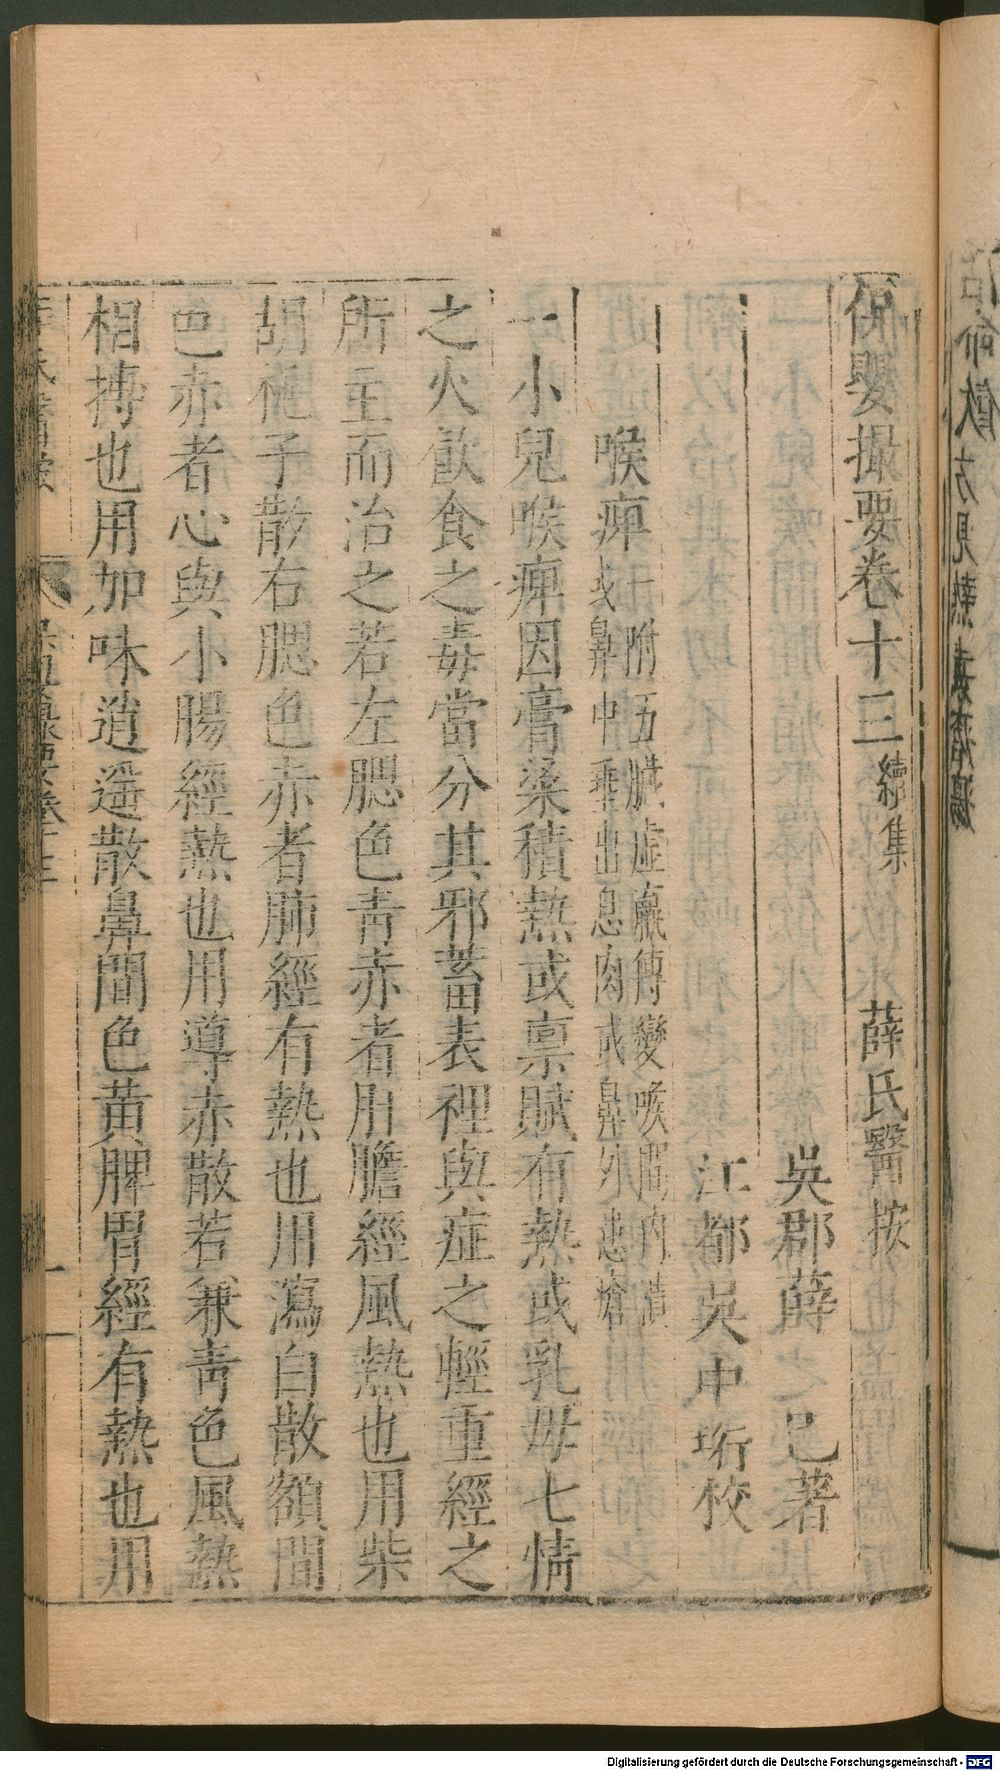 保嬰撮要卷十三續集　薛氏醫按
吳郡薛　己著
江都吳中珩校
喉痺一附五臟虛羸傳變喉間內潰
或鼻中垂出息肉或鼻外患瘡
一小兒喉痺因膏粱積熱或禀賦有熱或乳母七情
之火飲食之毒當分其邪蓄表裡與症之輕重經之
所主而治之若左腮色青赤者肝膽經風熱也用柴
胡梔子散右腮色赤者肺經有熱也用瀉白散額間
色赤者心與小腸經熱也用導赤散若兼青色風熱
相搏也用加味逍遙散鼻間色黃脾胃經有熱也用
保嬰撮要卷十三
一
活命飲方見熱毒瘡瘍
Digitalisierung gefördert durch die Deutsche Forschungsgemeinschaft - DFG